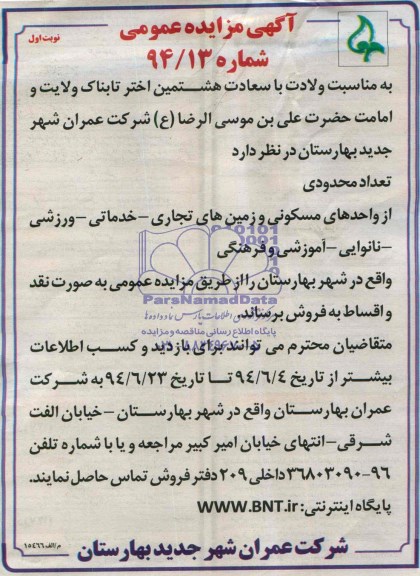 آگهی مزایده عمومی
نوبت اول
شماره ۹۴/۱۳
به مناسبت ولادت با سعادت هشتمین اختر تابناک ولایت و
امامت حضرت علی بن موسی الرضا (ع) شرکت عمران شهر
جدید بهارستان در نظر دارد
تعداد محدودی
از واحدهای مسکونی و زمین های تجاری – خدماتی – ورزشی
– نانوایی – آموزشی و فرهنگی
واقع در شهر بهارستان را از طریق مزایده عمومی به صورت نقد
و اقساط به فروش برساند.
متقاضیان محترم می توانند برای بازدید و کسب اطلاعات
بیشتر از تاریخ ۹۴/۶/۴ تا تاریخ ۹۴/۶/۲۳ به شرکت
عمران بهارستان واقع در شهر بهارستان – خیابان الفت
شرقی – انتهای خیابان امیر کبیر مراجعه و یا با شماره تلفن
۹۶-۳۶۸۰۳۰۹۰ داخلی ۲۰۹ دفتر فروش تماس حاصل نمایند.
پایگاه اینترنتی: WWW.BNT.ir
شرکت عمران شهر جدید بهارستان
م/الف ۱۵۴۶۶
ParsNamadData
پایگاه اطلاع رسانی مناقصه و مزایده